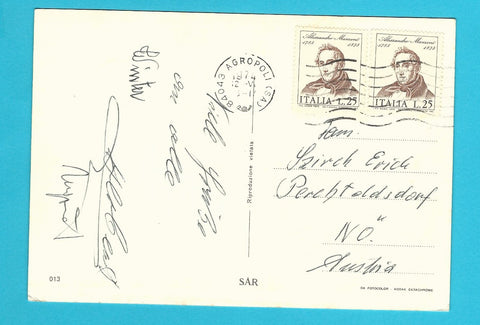 Viele Grüße
an alle
84043 AGROPOLI (SA)
Alessandro Manzoni
1785 1873
ITALIA L.25
Alessandro Manzoni
1785 1873
ITALIA L.25
Fam.
Szirch Erich
Perchtoldsdorf
NÖ.
Austria
Riproduzione vietata
013
SAR
DA FOTOCOLOR - KODAK EKTACHROME